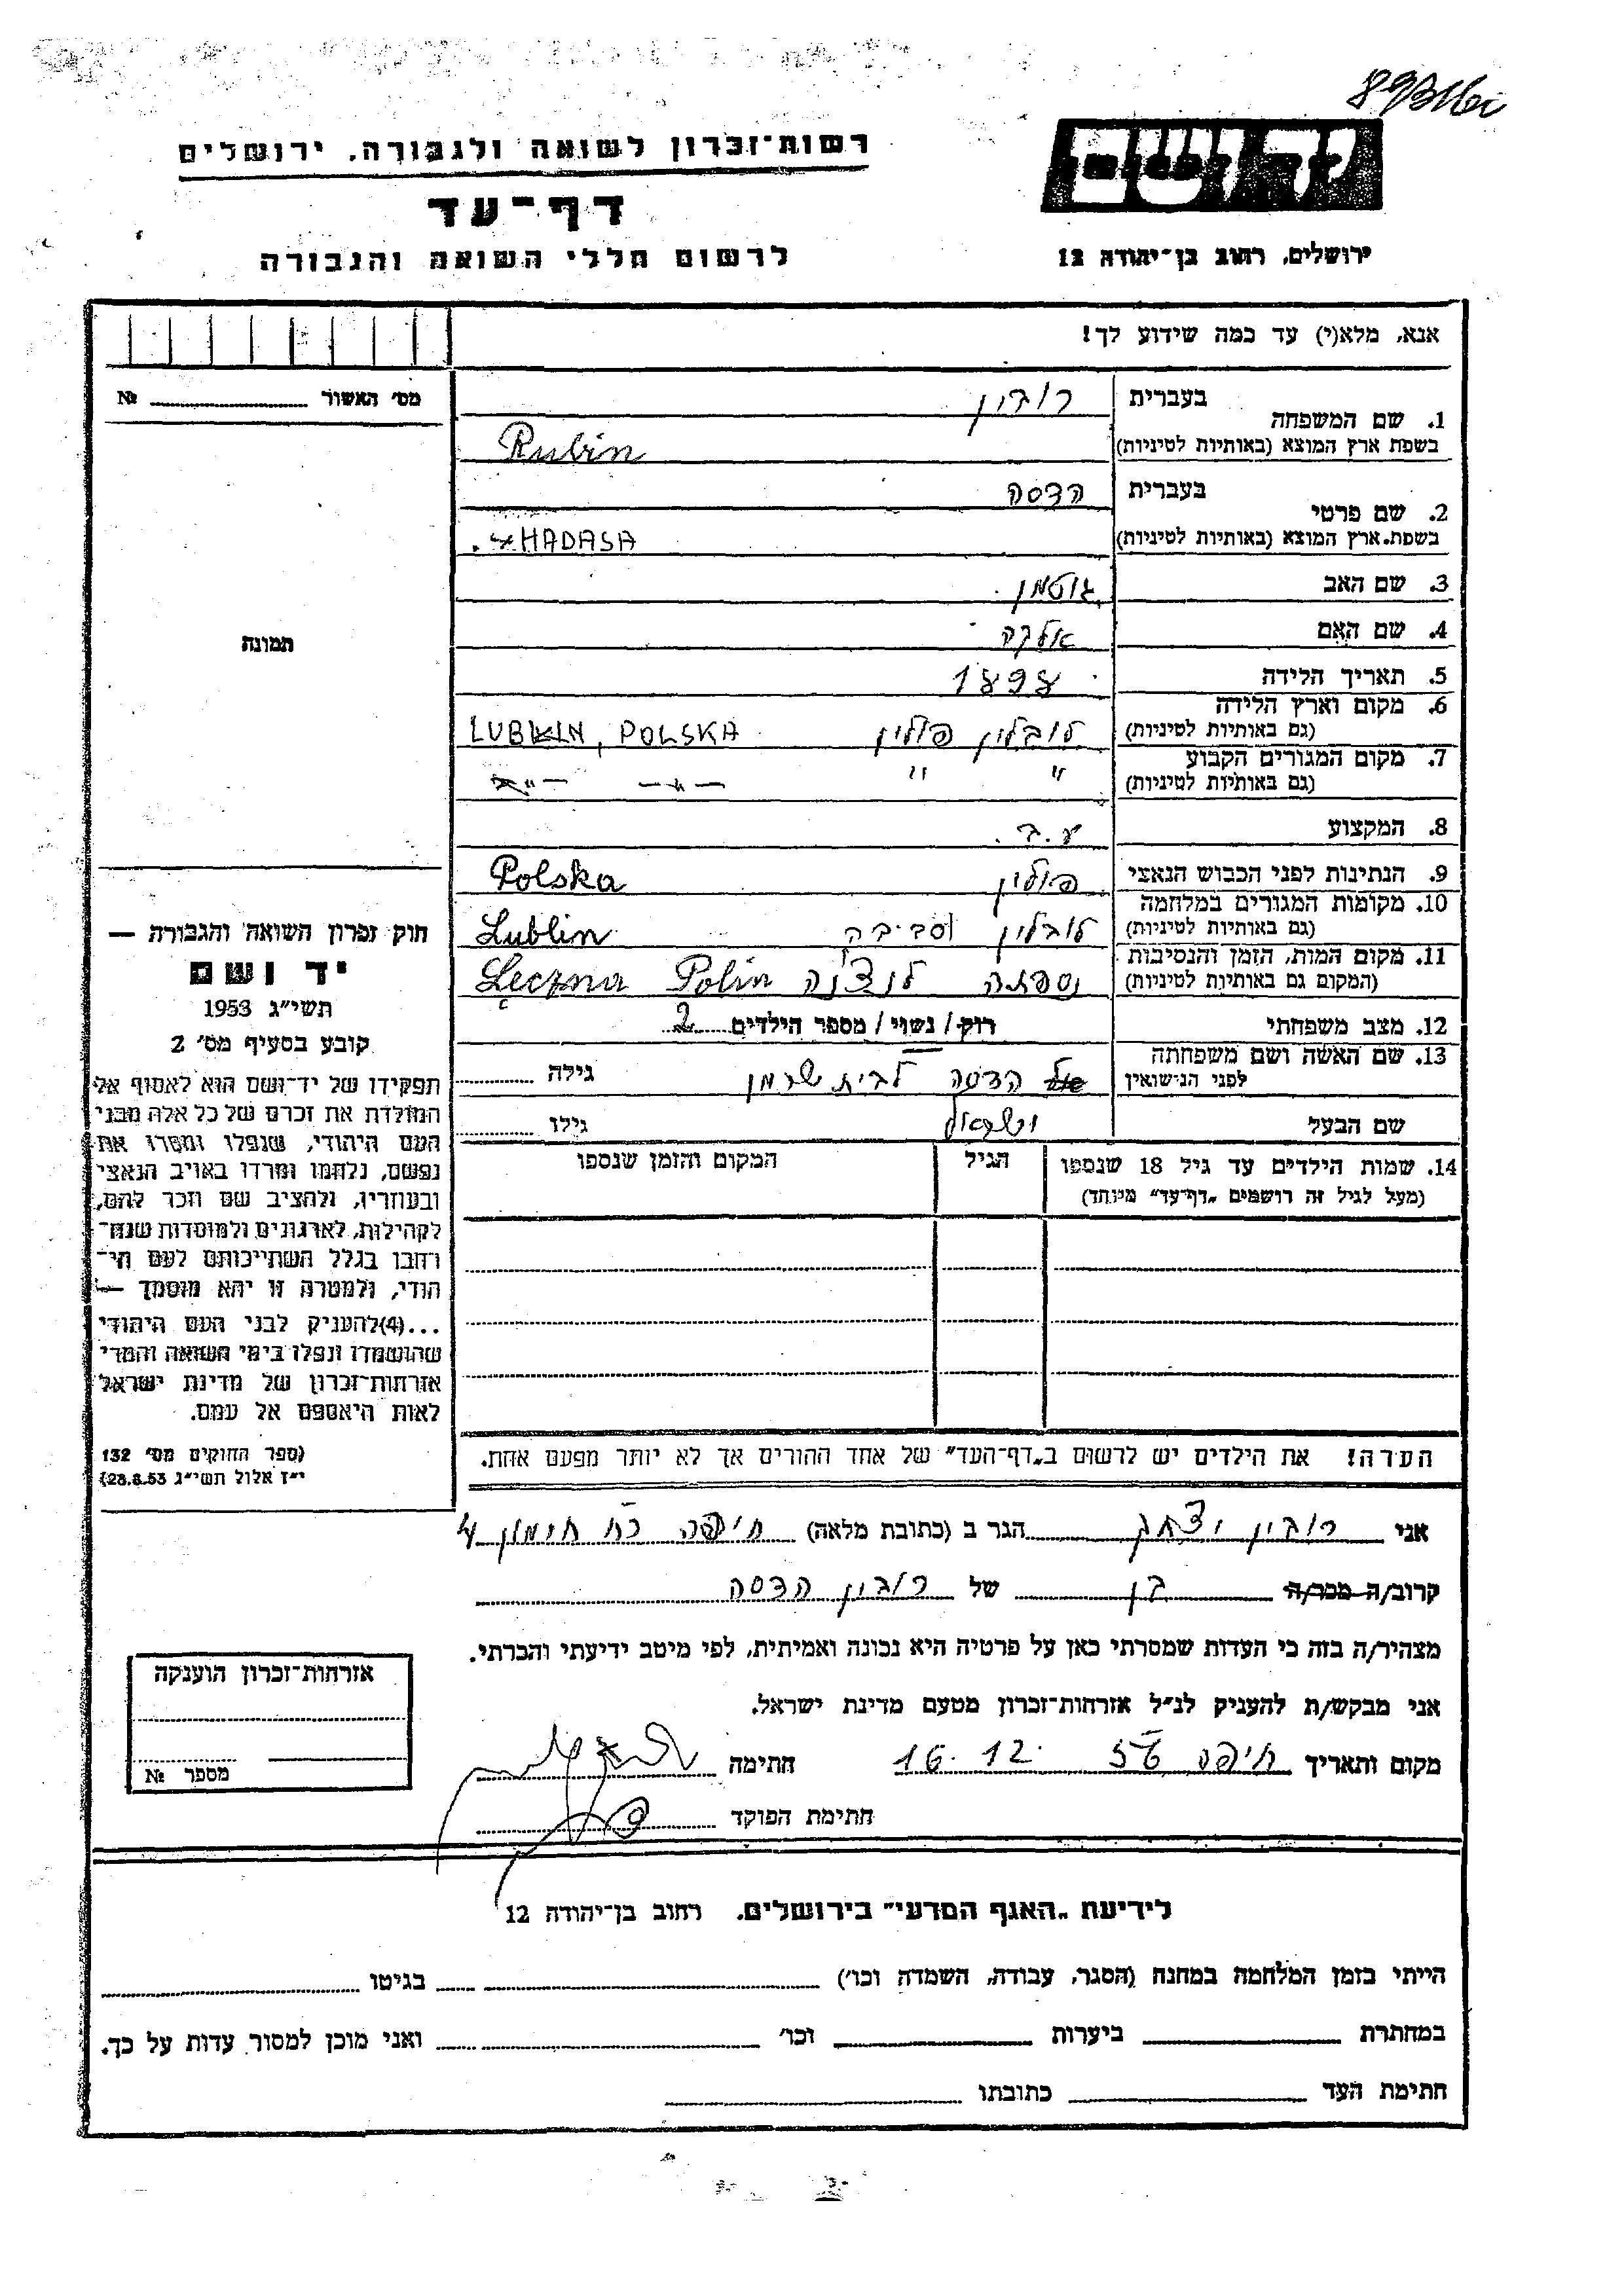 רשות־זכרון לשואה ולגבורה, ירושלים
יד ושם
דף־עד
לרשום חללי השואה והגבורה
ירושלים, רחוב בן־יהודה 12
אנא, מלא(י) עד כמה שידוע לך!
מס' האשור №
1. שם המשפחה
בעברית רובין
בשפת ארץ המוצא (באותיות לטיניות) Rubin
2. שם פרטי
בעברית הדסה
בשפת ארץ המוצא (באותיות לטיניות) HADASA
3. שם האב גוטמן
4. שם האם אלקה
5. תאריך הלידה 1898
6. מקום וארץ הלידה לובלין פולין LUBLIN, POLSKA
(גם באותיות לטיניות)
7. מקום המגורים הקבוע " " — " — — " —
(גם באותיות לטיניות)
8. המקצוע ע.ב.
9. הנתינות לפני הכבוש הנאצי פולין Polska
10. מקומות המגורים במלחמה לובלין וסביבה Lublin
(גם באותיות לטיניות)
11. מקום המות, הזמן והנסיבות נספתה לנצ'נה Polin Łęczna
(המקום גם באותיות לטיניות)
12. מצב משפחתי רוק/נשוי/ מספר הילדים 2
13. שם האשה ושם משפחתה הדסה לבית שרמן גילה
לפני הנישואין
שם הבעל ישראל גילו
14. שמות הילדים עד גיל 18 שנספו הגיל המקום והזמן שנספו
(מעל לגיל זה רושמים „דף־עד" מיוחד)
הערה! את הילדים יש לרשום ב„דף־העד" של אחד ההורים אך לא יותר מפעם אחת.
תמונה
חוק זכרון השואה והגבורה —
יד ושם
תשי"ג 1953
קובע בסעיף מס' 2
תפקידו של יד־ושם הוא לאסוף אל
המולדת את זכרם של כל אלה מבני
העם היהודי, שנפלו ומסרו את
נפשם, נלחמו ומרדו באויב הנאצי
ובעוזריו, ולהציב שם וזכר להם,
לקהילות, לארגונים ולמוסדות שנח־
רחבו בגלל השתייכותם לעם הי־
הודי, ולמטרה זו יהא מוסמך —
...(4)להעניק לבני העם היהודי
שהושמדו ונפלו בימי השואה והמרי
אזרחות־זכרון של מדינת ישראל
לאות היאספם אל עמם.
(ספר החוקים מס' 132
י"ז אלול תשי"ג 28.8.53)
אני רובין יצחק הגר ב (כתובת מלאה) חיפה
קרוב/ה מכר/ה בן של רובין הדסה
מצהיר/ה בזה כי העדות שמסרתי כאן על פרטיה היא נכונה ואמיתית, לפי מיטב ידיעתי והכרתי.
אני מבקש/ת להעניק לנ"ל אזרחות־זכרון מטעם מדינת ישראל.
מקום ותאריך חיפה 16.12.56 חתימה
חתימת הפוקד
אזרחות־זכרון הוענקה
מספר №
לידיעת „האגף המדעי" בירושלים, רחוב בן־יהודה 12
הייתי בזמן המלחמה במחנה (הסגר, עבודה, השמדה וכו') בגיטו
במחתרת ביערות וכו' ואני מוכן למסור עדות על כך.
חתימת העד כתובתו